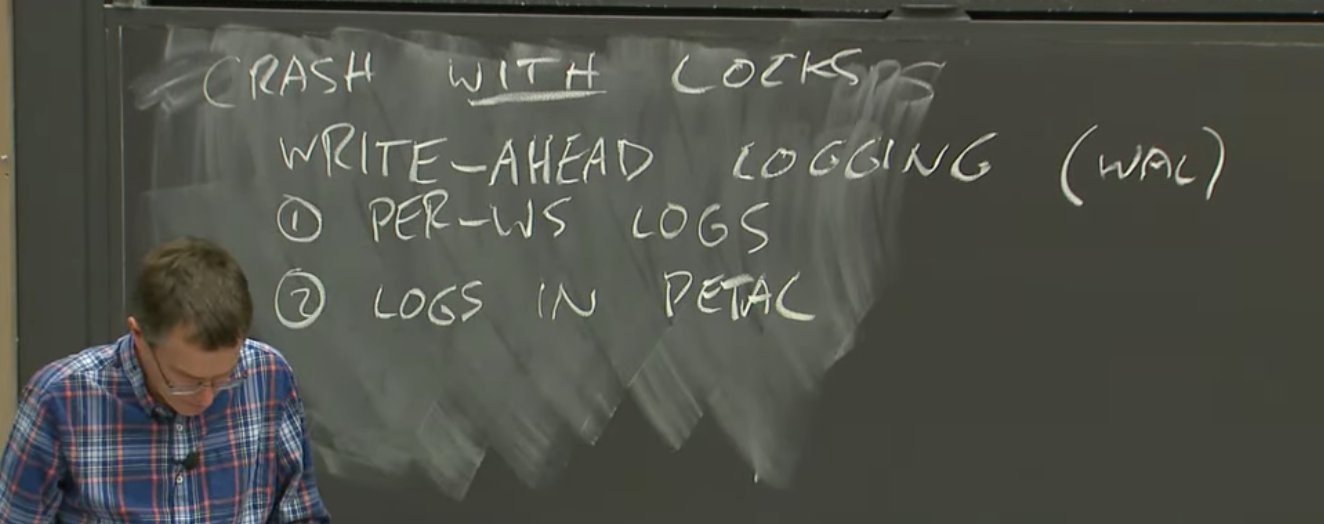 CRASH WITH LOCKS
WRITE-AHEAD LOGGING (WAL)
① PER-WS LOGS
② LOGS IN PETAL